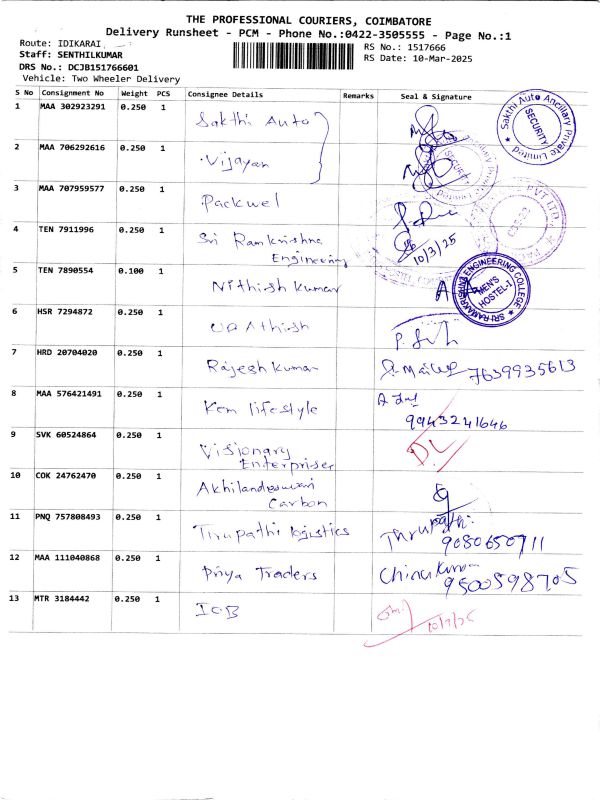 THE PROFESSIONAL COURIERS, COIMBATORE
Delivery Runsheet - PCM - Phone No.:0422-3505555 - Page No.:1
Route: IDIKARAI
RS No.: 1517666
Staff: SENTHILKUMAR
RS Date: 10-Mar-2025
DRS No.: DCJB151766601
Vehicle: Two Wheeler Delivery
S No Consignment No Weight PCS Consignee Details Remarks Seal & Signature
1 MAA 302923291 0.250 1 Sakthi Auto
Sakthi Auto Ancillary Private Limited
SECURITY
2 MAA 706292616 0.250 1 Vijayan
SECURITY
3 MAA 707959577 0.250 1 Packwel
PVT LTD
4 TEN 7911996 0.250 1 Sri Ramkrishna
Engineering
10/3/25
5 TEN 7890554 0.100 1 Nithish Kumar
SRI RAMAKRISHNA ENGINEERING COLLEGE
MEN'S
HOSTEL-I
6 HSR 7294872 0.250 1
7 HRD 20704020 0.250 1 Rajesh Kumar
7639935613
8 MAA 576421491 0.250 1 Kem lifestyle
9943241646
9 SVK 60524864 0.250 1 Visionary
Enterpriser
DL
10 COK 24762470 0.250 1 Akhilandeswari
Carbon
11 PNQ 757808493 0.250 1 Tirupathi logistics
Thirupathi
9080650711
12 MAA 111040868 0.250 1 Priya Traders
Chinukumar
9500598705
13 MTR 3184442 0.250 1 IOB